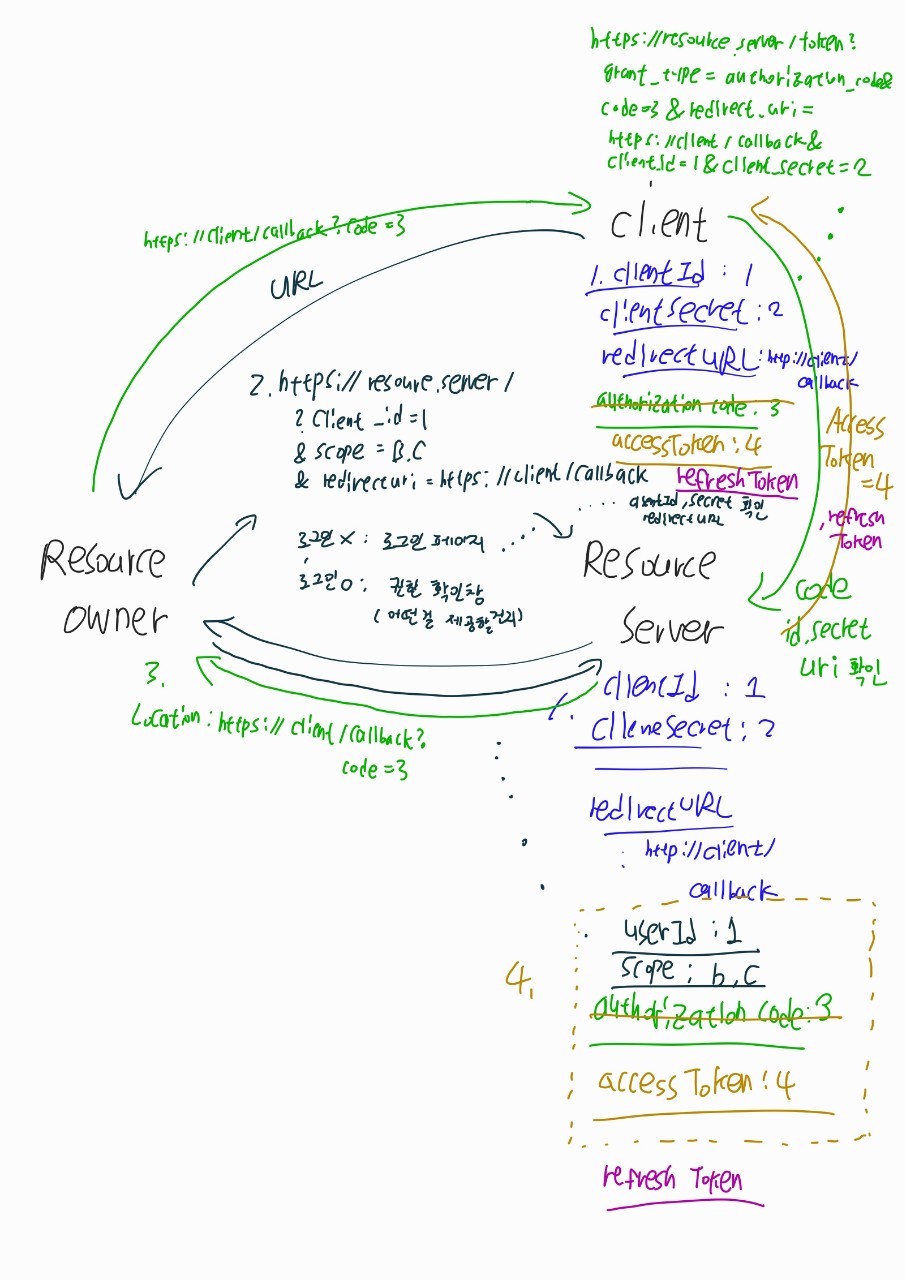 https://resource.server/token?
grant_type = authorization_code&
code=3 & redirect_uri =
https://client/callback&
client_id=1&client_secret=2
client
https://client/callback?code=3
URL
1. clientId : 1
clientSecret : 2
redirectURL : http://client/
callback
authorization code : 3
accessToken : 4
refreshToken
clientId, secret 확인
redirect URL
Access
Token
=4
, refresh
Token
2. https://resoure.server/
? Client_id=1
& scope = B.C
& redirecturi = https://client/callback
로그인 X : 로그인 페이지
로그인 O : 권한 확인창
(어떤걸 제공할건지)
Resource
Owner
Resource
Server
code
id.secret
uri 확인
3.
Location : https://client/callback?
code=3
1. clientId : 1
ClieneSecret : 2
redirectURL
: http://client/
callback
4.
userId : 1
scope : b,c
authorization code : 3
accessToken : 4
refresh Token